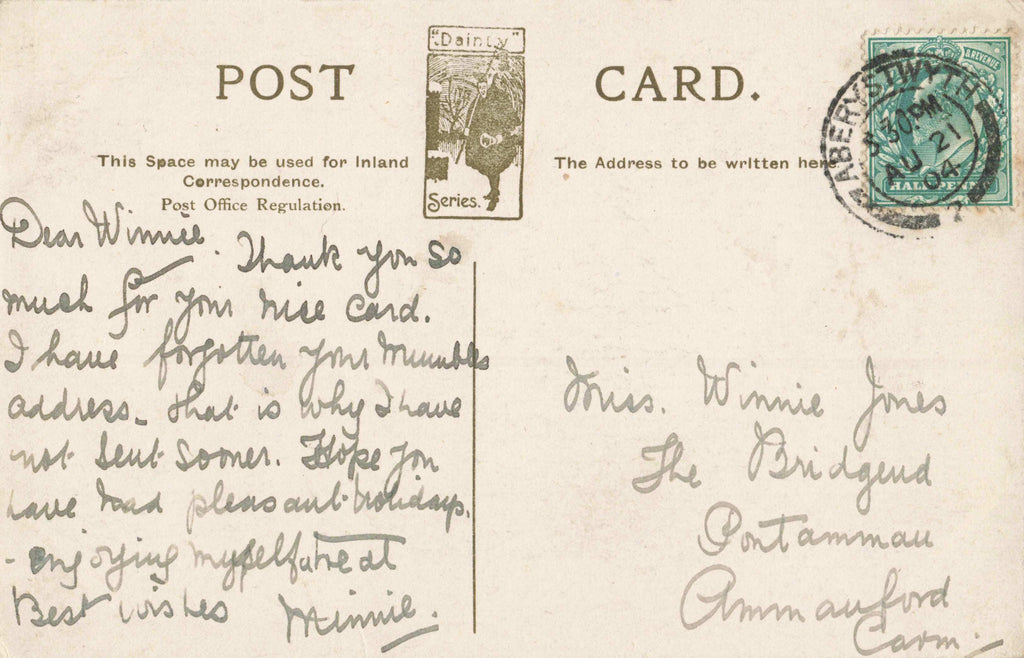 POST CARD.
"Dainty"
Series.
This Space may be used for Inland
Correspondence.
Post Office Regulation.
The Address to be written here
& REVENUE
HALFPENNY
ABERYSTWYTH
30PM
AU 21
04
Dear Winnie. Thank you so
much for your nice card.
I have forgotten your Mumbles
address_ that is why I have
not sent sooner. Hope you
have had pleasant holidays.
- enjoying myself
Best wishes Minnie.
Miss. Winnie Jones
The Bridgend
Pontamman
Ammanford
Carm.